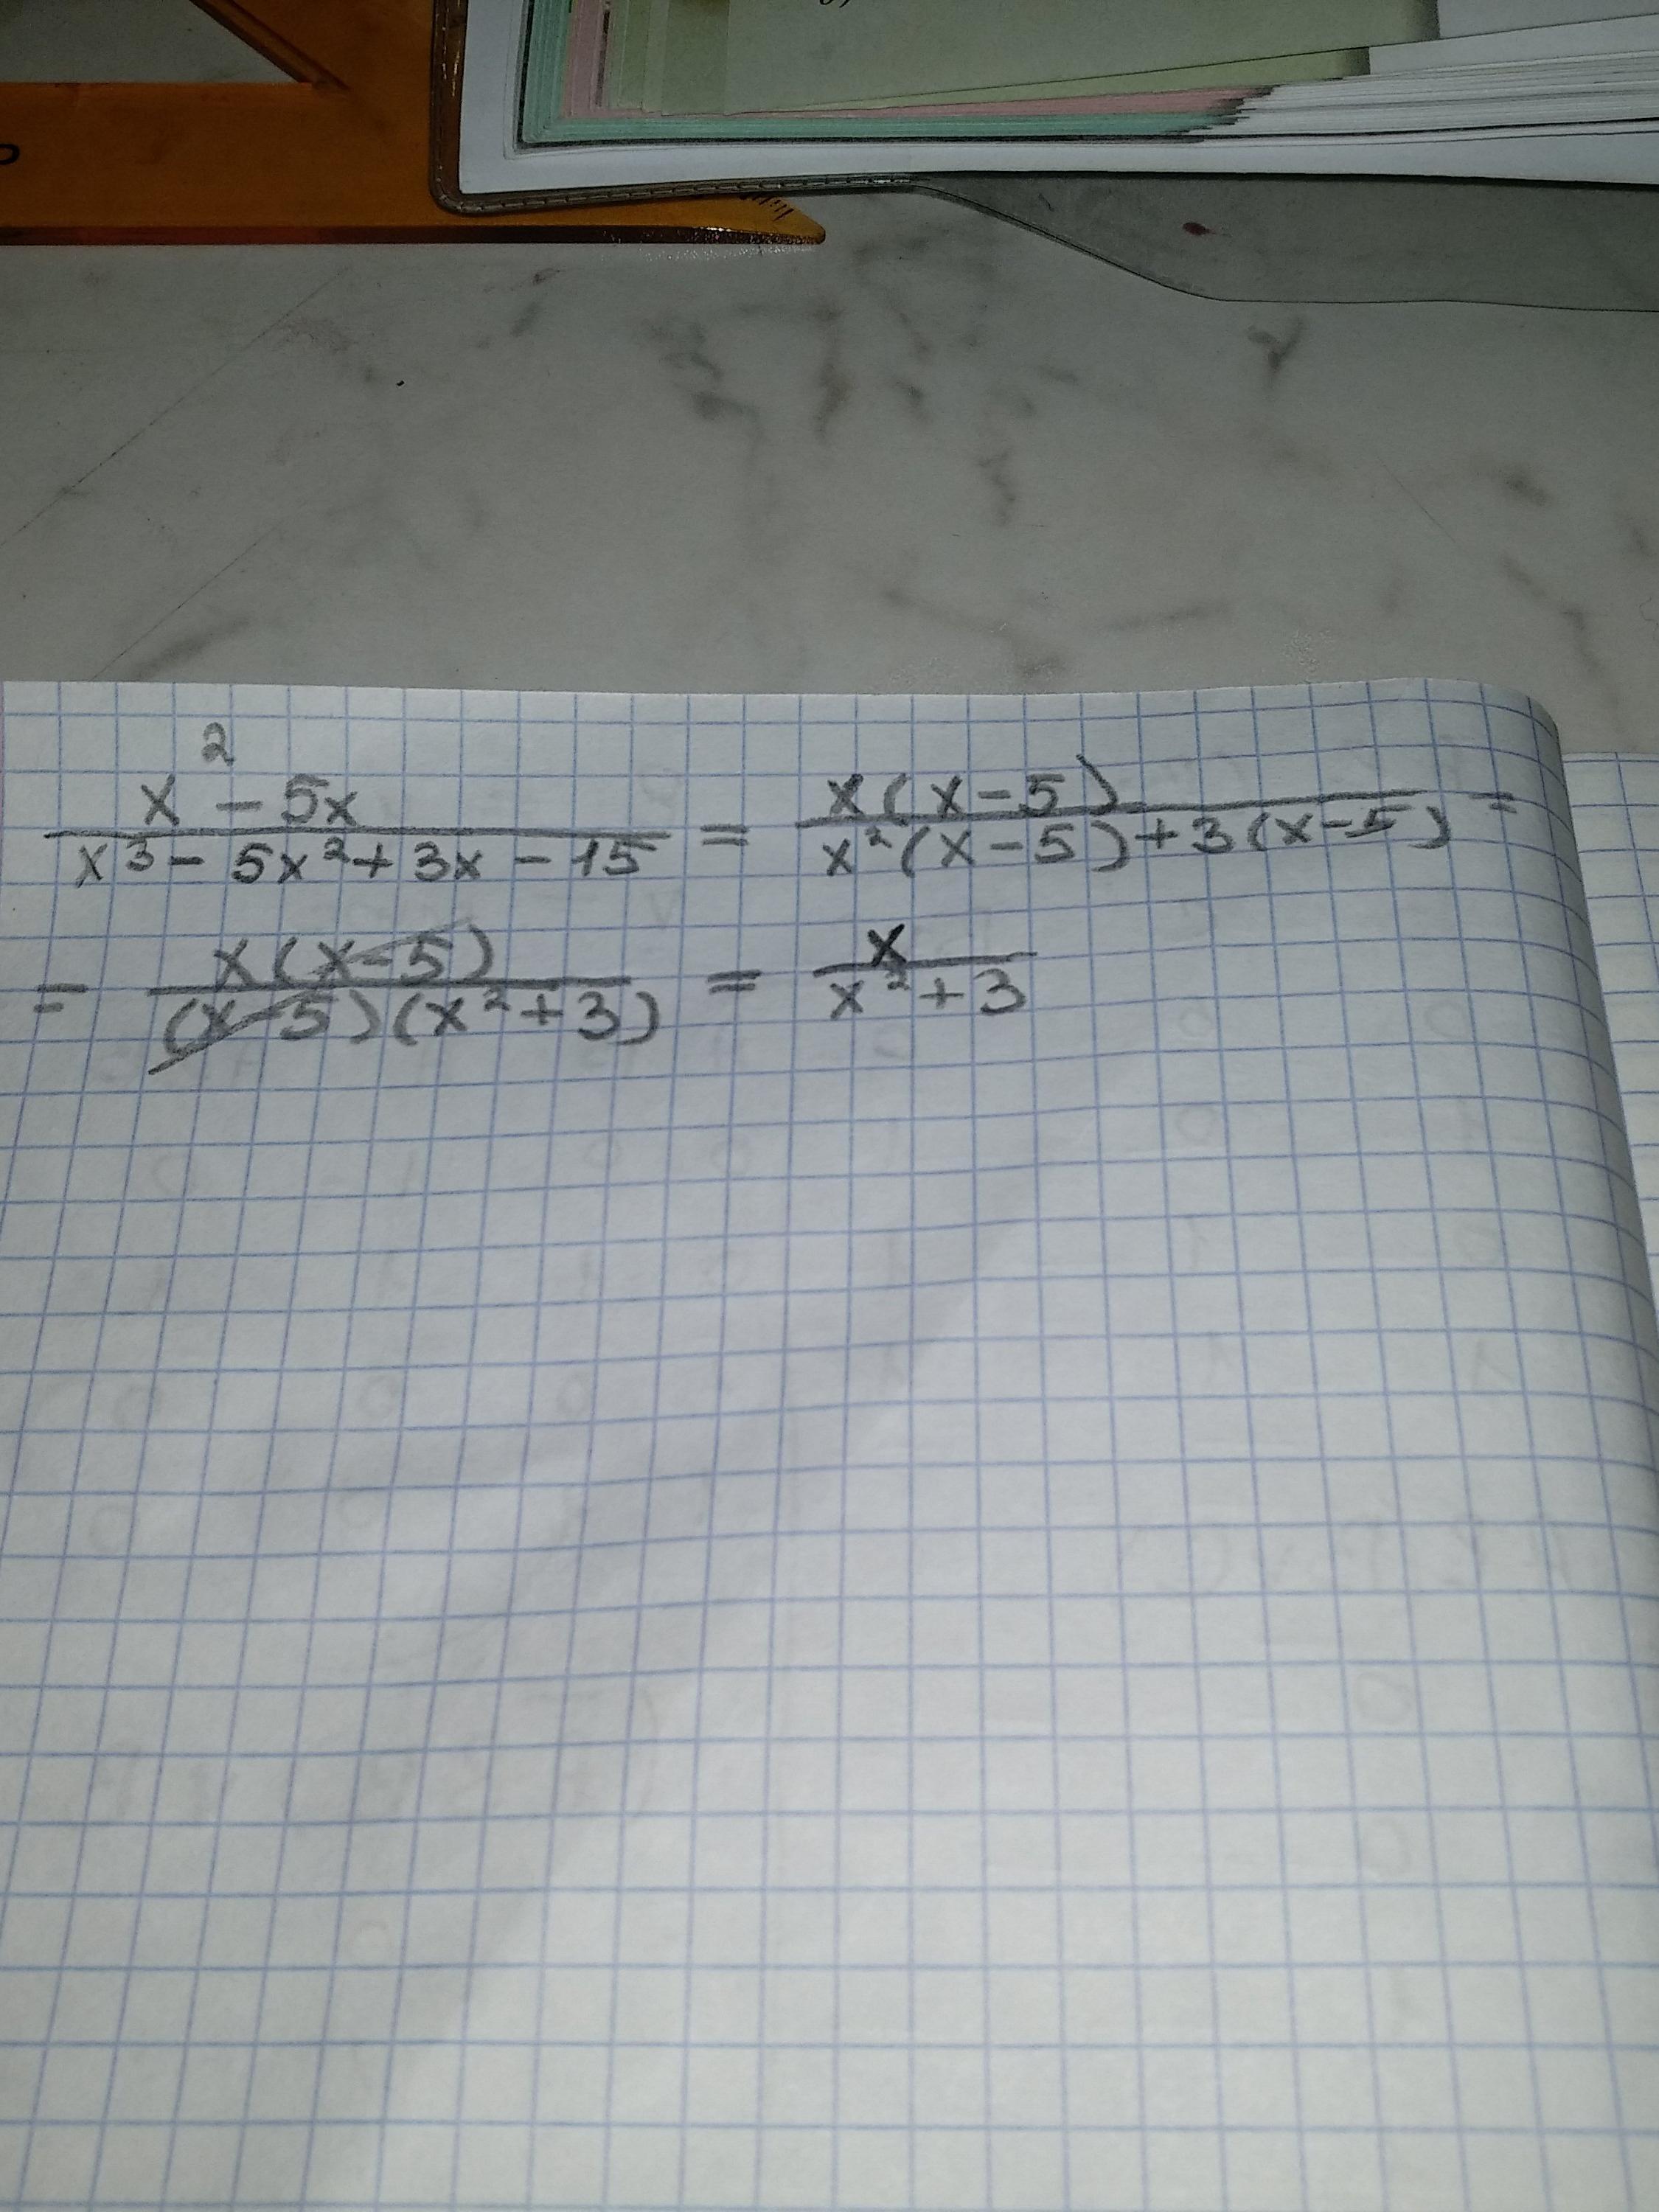 x² - 5x / x³ - 5x² + 3x - 15 = x(x-5) / x²(x-5)+3(x-5) =
= x(x-5) / (x-5)(x²+3) = x / x²+3